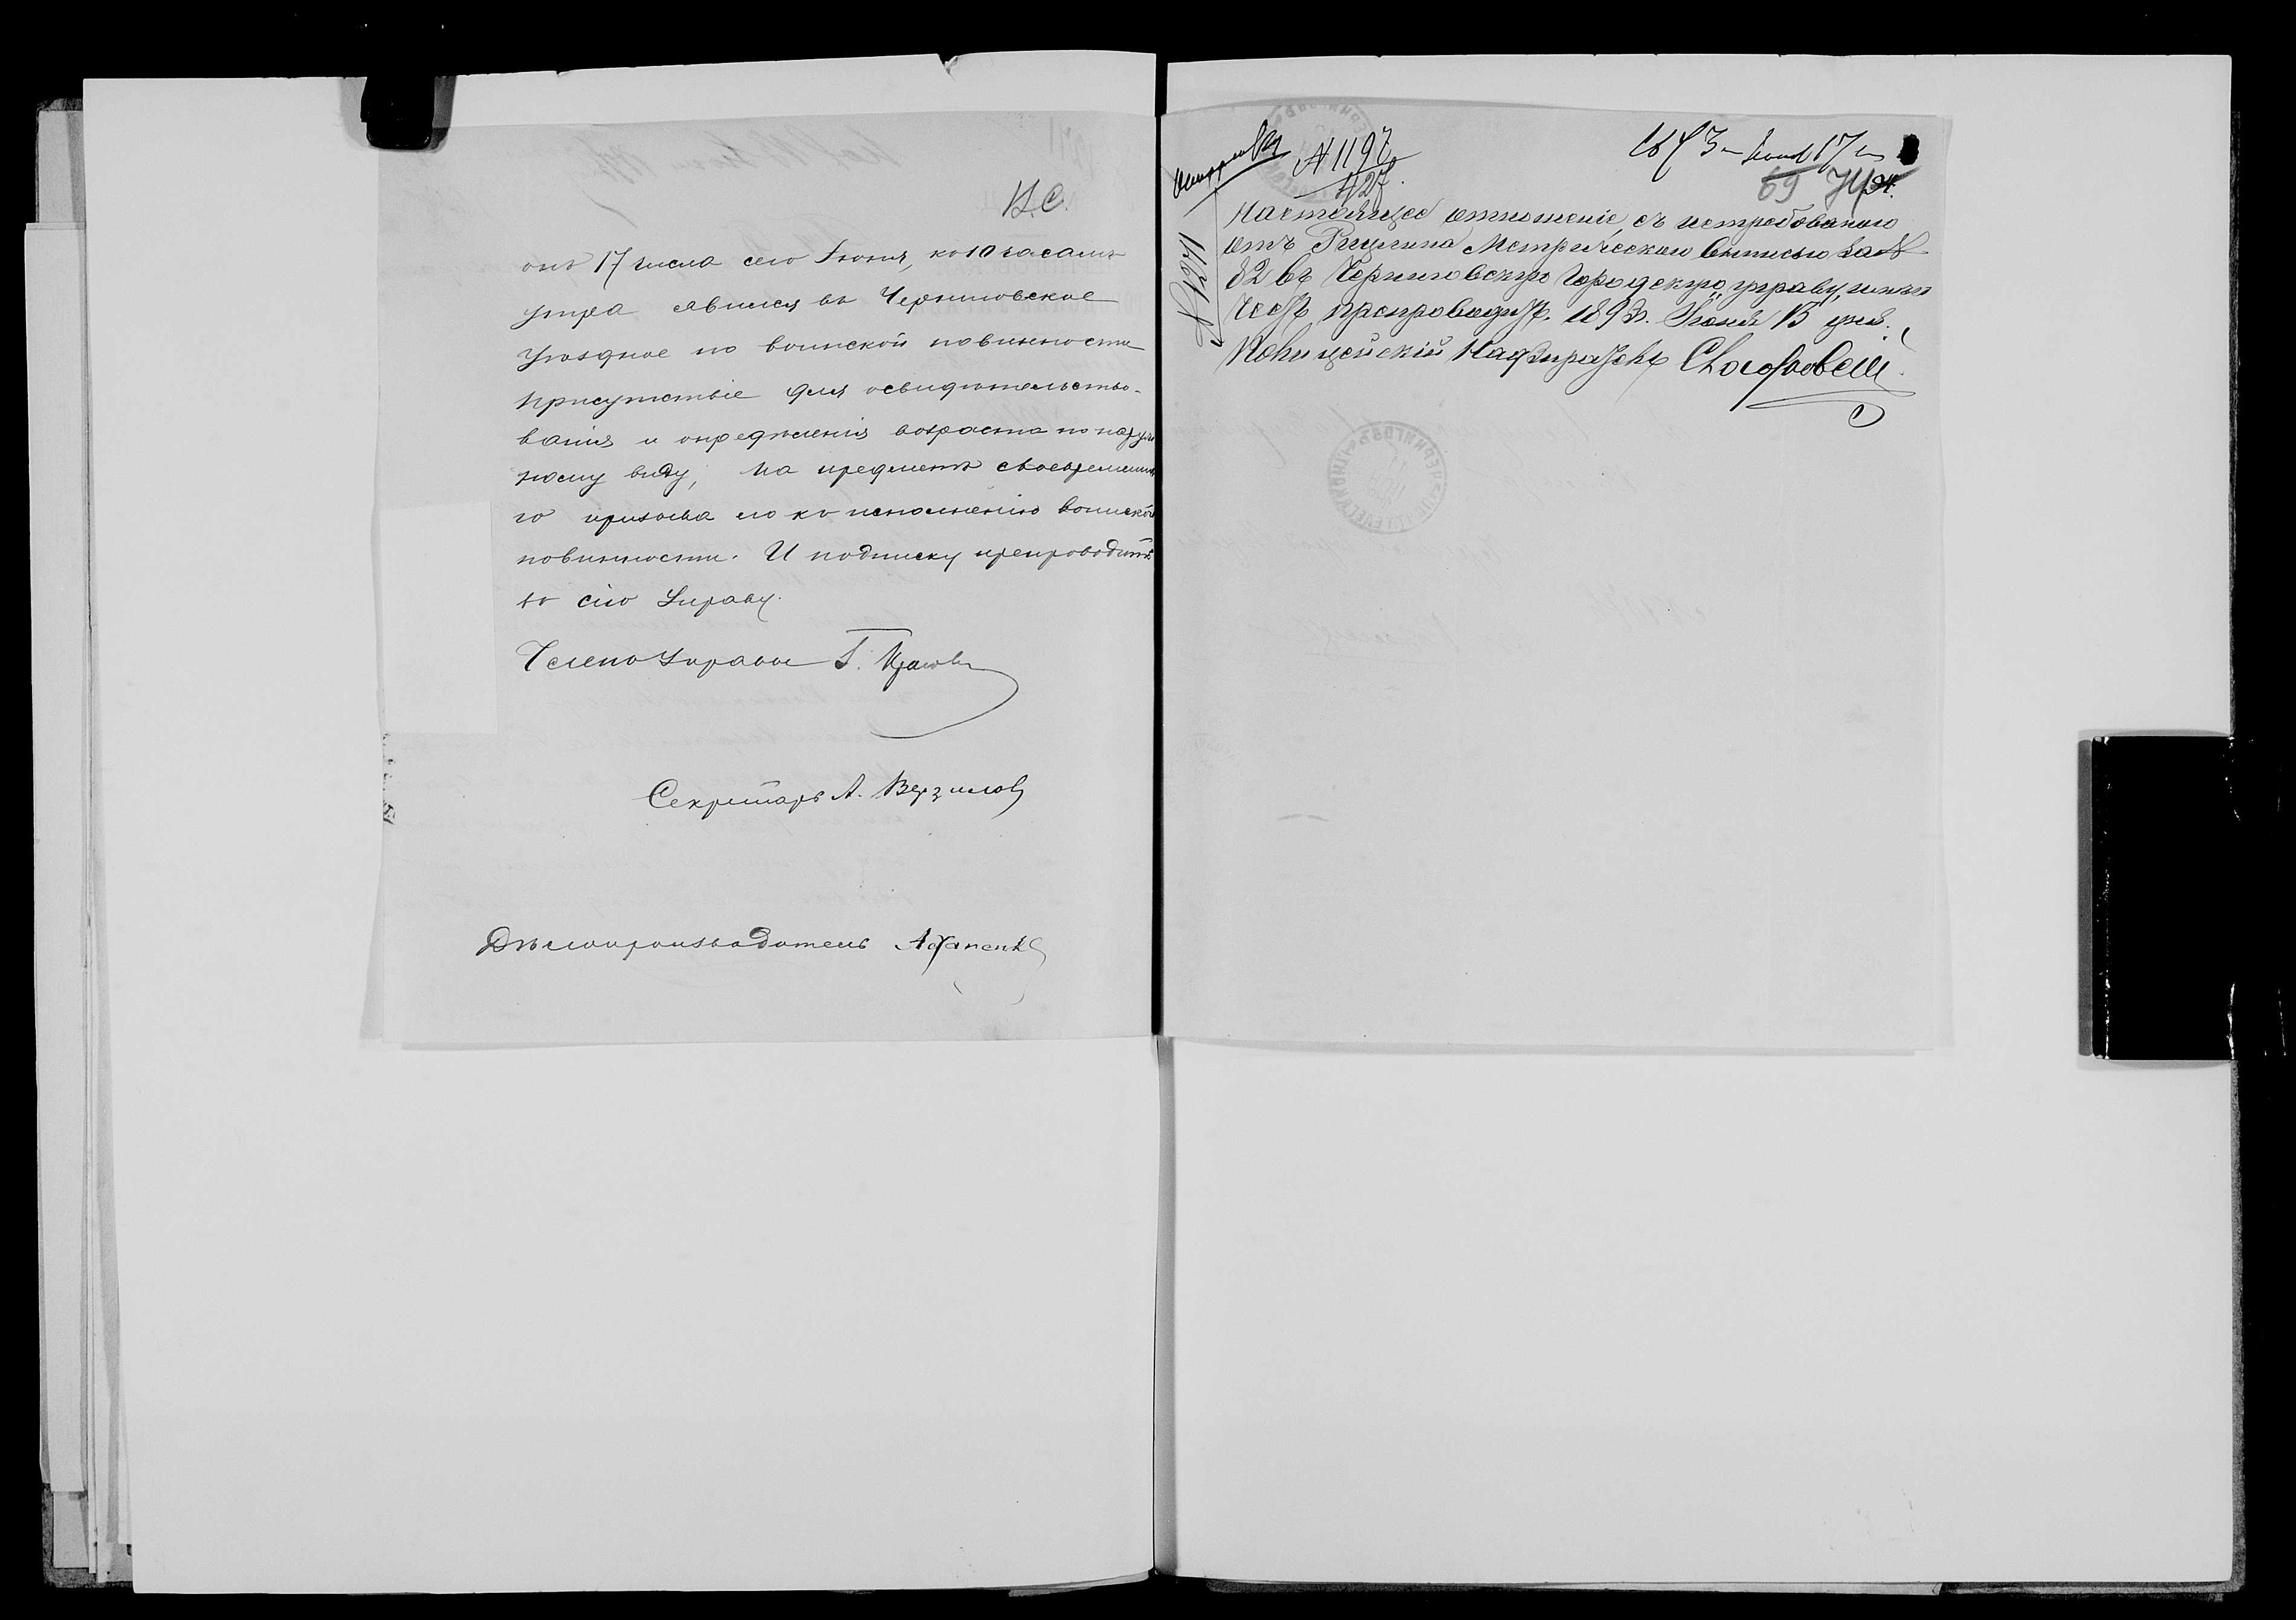 В. С.
онъ 17 числа сего Іюня, къ 10 часамъ
утра явился въ Черниговское
Уѣздное по воинской повинности
присутствіе для освидѣтельство-
ванія и опредѣленія возраста по наруж
ному виду, на предметъ своевременна
го призыва его къ исполненію воинской
повинности. И подписку препроводить
въ сію Управу.
Членъ Управы
Секретарь А. Верзилов
Дѣлопроизводитель
№ 1197
№ 1271
69
Настоящее отношеніе, съ истребованою
отъ Рицлина Метрическою выписью за №
82 въ Черниговскую Городскую управу, имѣю
честь препроводить. 1893 г. Іюня 15 дня.
Полицейскій Надзиратель